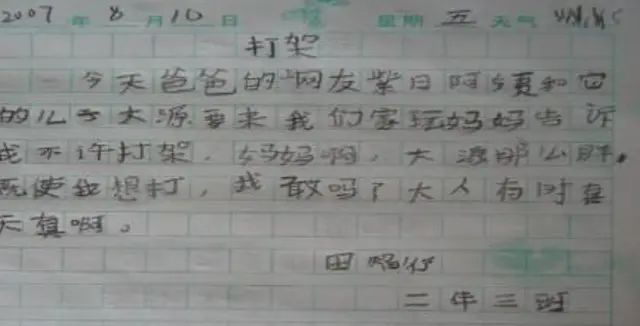 2007 年 8 月 10 日 星期 五 天气
打架
今天爸爸的"网友紫日阿姨和它
的儿子大源要来我们家玩妈妈告诉
我不许打架．妈妈啊，大源那么胖，
既使我想打，我敢吗？大人有时真
天真啊。
田
二年三班